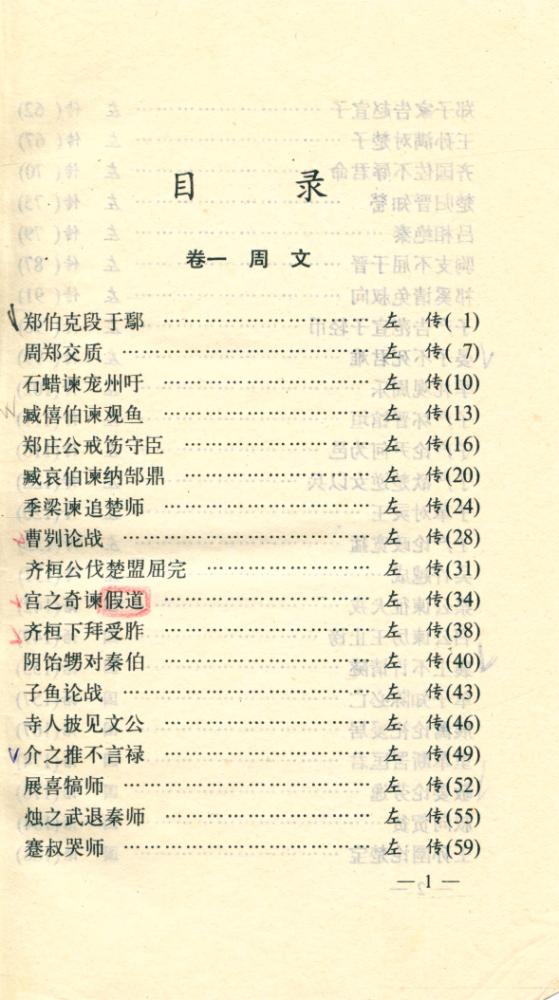 目 录
卷一 周 文
郑伯克段于鄢 ………………………… 左 传( 1)
周郑交质 ……………………………… 左 传( 7)
石蜡谏宠州吁 ………………………… 左 传(10)
臧僖伯谏观鱼 ………………………… 左 传(13)
郑庄公戒饬守臣 ……………………… 左 传(16)
臧哀伯谏纳郜鼎 ……………………… 左 传(20)
季梁谏追楚师 ………………………… 左 传(24)
曹刿论战 ……………………………… 左 传(28)
齐桓公伐楚盟屈完 …………………… 左 传(31)
宫之奇谏假道 ………………………… 左 传(34)
齐桓下拜受胙 ………………………… 左 传(38)
阴饴甥对秦伯 ………………………… 左 传(40)
子鱼论战 ……………………………… 左 传(43)
寺人披见文公 ………………………… 左 传(46)
介之推不言禄 ………………………… 左 传(49)
展喜犒师 ……………………………… 左 传(52)
烛之武退秦师 ………………………… 左 传(55)
蹇叔哭师 ……………………………… 左 传(59)
— 1 —